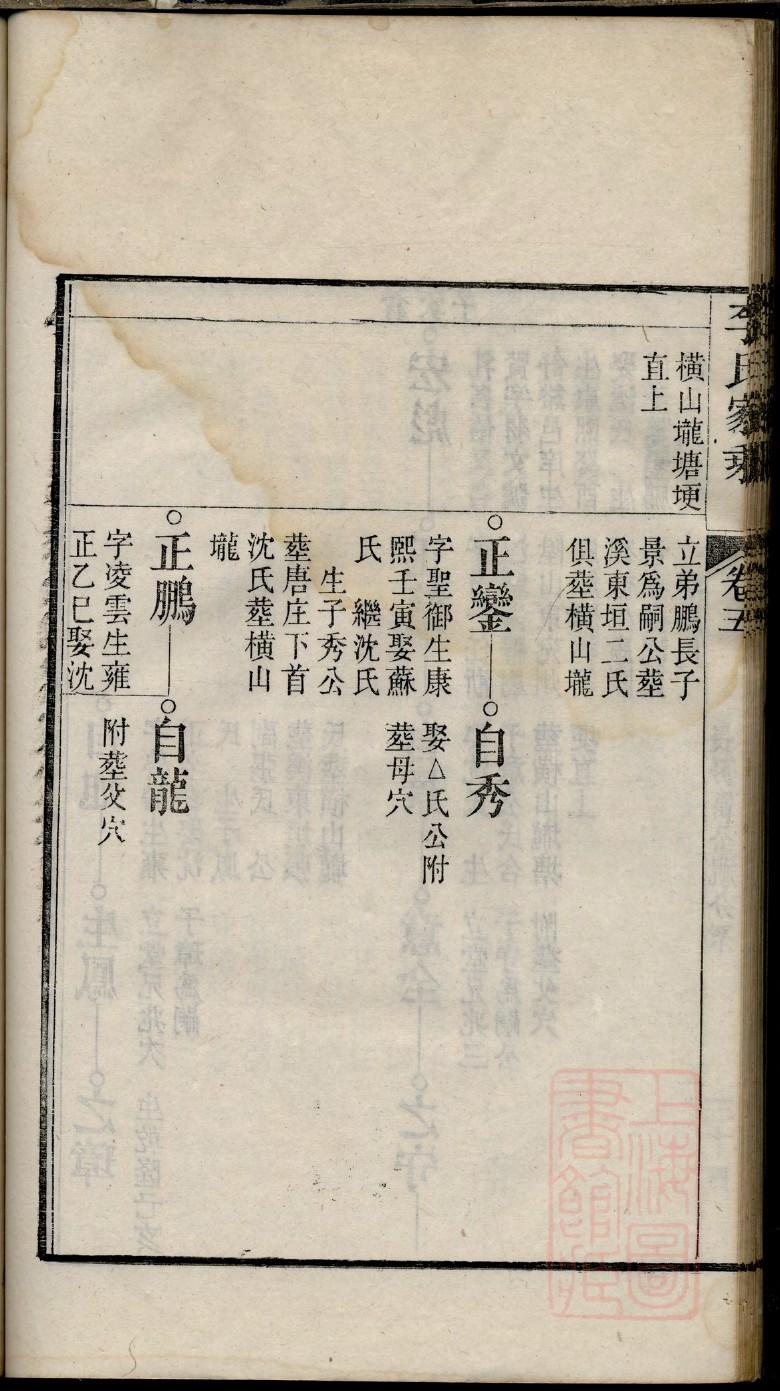 李氏家乘
卷五
橫山壠塘埂
直上
立弟鵬長子
景爲嗣公塟
溪東垣二氏
俱塟橫山壠
正鑾
字聖御生康
熙壬寅娶蘇
氏　繼沈氏
生子秀公
塟唐庄下首
沈氏塟橫山
壠
自秀
娶△氏公附
塟母穴
正鵬
字凌雲生雍
正乙巳娶沈
自龍
附塟父穴
上海圖
書館藏